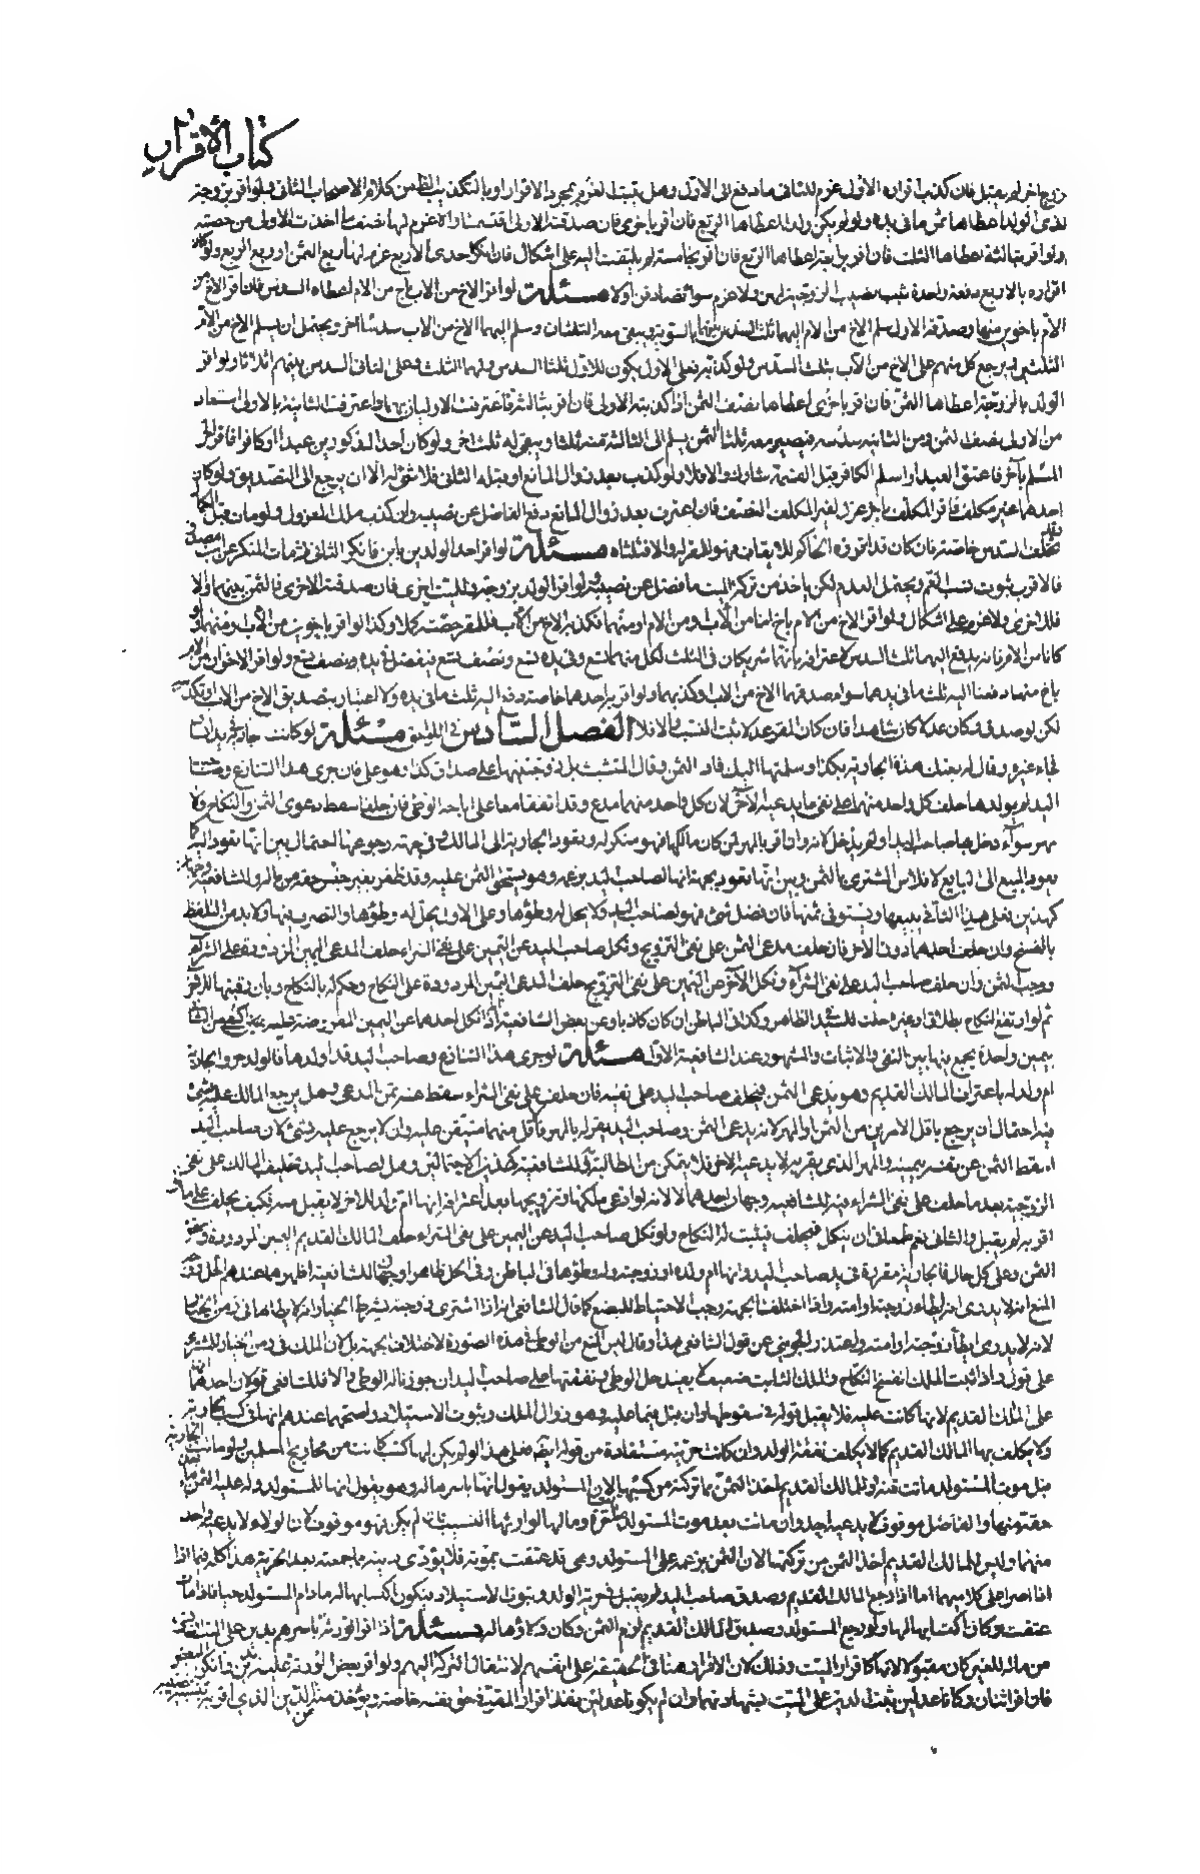 كتاب الاقرار
بزوج اخر لم يقبل فان كذب اقراره الاول غرم للثانى ما دفع الى الاول وهل يثبت الغرم بمجرد الاقرار او بالتكذيب الظ من كلام الاصحاب الثانى ولو اقر بزوجة
لذى الولد اعطاها ثمن ما فى يده ولو لم يكن ولد اعطاها الربع فان اقر باخرى فان صدقته الاولى اقتسمتاه والا غرم لها نصف ما اخذت الاولى من حصته
ولو اقر بثالثة اعطاها الثلث فان اقر برابعة اعطاها الربع فان اقر بخامسة لم يلتفت اليه على اشكال فان انكر احدى الاربع غرم لها ربع الثمن او ربع الربع ولو كان
اقراره بالاربع دفعة واحدة ثبت نصيب الزوجية لهن ولا غرم سواء تصادقن او لا مسئلة لو اقر الاخ من الاب باخ من الام اعطاه السدس فان اقر الاخ من
الام باخوين منها وصدقه الاول سلم الاخ من الام اليهما ثلث السدس بينهما بالسوية ويبقى معه الثلثان وسلم اليهما الاخ من الاب سدسا اخر ويحتمل ان يسلم الاخ من الام
الثلثين ويرجع كل منهم على الاخ من الاب بثلث السدس ولو كذبه فعلى الاول يكون للاول ثلثا السدس ولهما الثلث وعلى الثانى السدس بينهم اثلاثا ولو اقر
الولد بالزوجة اعطاها الثمن فان اقر باخرى اعطاها نصف الثمن اذا كذبته الاولى فان اقر بثالثة فاعترفت الاوليان بها واعترفت الثانية بالاولى استعاد
من الاولى نصف الثمن ومن الثانية سدسه فيصير معه ثلثا الثمن يسلم الى الثالثة منه ثلثا ويبقى له ثلث اخر ولو كان احد المذكورين عبدا او كافرا فاقر الحر
المسلم بآخر فاعتق العبد او اسلم الكافر قبل القسمة شارك والا فلا ولو كذب بعد زوال المانع او قبله الثانى فلا شىء له الا ان يرجع الى التصديق ولو كان
احدهما غير مكلف فاقر المكلف باخر عزل لغير المكلف النصف فان اعترف بعد زوال المانع دفع الفاضل عن نصيبه وان كذب ملك المعزول ولو مات قبل الكمال وقد
تخلف السدس خاصة فان كان قد افرزه الحاكم للايقاف فهو للمقر له والا فثلثاه مسئلة لو اقر احد الولدين بابن فانكر الثانى ثم مات المنكر عن ابن مصدق
فالاقرب ثبوت نسب العم ويحتمل العدم لكن ياخذ من تركة الميت ما فضل عن نصيبه ولو اقر الولد بزوجة وللميت اخرى فان صدقته الاخرى فالثمن بينهما والا
فللاخرى ولا غرم على اشكال ولو اقر الاخ من الام باخ لهما من الاب او من الام او منهما فكذبه الاخ من الاب فللمقر حصته كملا وكذا لو اقر باخوين من الاب او منهما ولو
كانا من الام فانه يدفع اليهما ثلث السدس لاعترافه بانهما شريكان فى الثلث لكل منهما تسع وفى يده تسع ونصف تسع فيفضل فى يده نصف تسع ولو اقر الاخوان من الام
باخ منهما دفعا اليه ثلث ما فى يدهما سواء صدقهما الاخ من الاب او كذبهما ولو اقر به احدهما خاصة دفع اليه ثلث ما فى يده ولا اعتبار بتصديق الاخ من الاب او تكذيبه
لكن لو صدق وكان عدلا كان شاهدا فان كان المقر عدلا ثبت النسب والا فلا الفصل السادس فى اللواحق مسئلة لو كانت جارية فى يد انسان
فجاء غيره وقال له بعتك هذه الجارية بكذا وسلمتها اليك فاد الثمن وقال المتشبث بل زوجتنيها على صداق كذا وهو على فان جرى هذا التنازع وصاحب
اليد لم يولدها حلف كل واحد منهما على نفى ما يدعيه الآخر لان كل واحد منهما مدع وقد اتفقا معا على اباحة الوطى فان حلفا سقط دعوى الثمن والنكاح ولا
مهر سواء دخل بها صاحب اليد او لم يدخل لانه وان اقر بالمهر لمن كان مالكها فهو منكر له ويعود الجارية الى المالك وفى جهة رجوعها احتمال بين انها تعود اليه كما
يعود المبيع الى البايع لافلاس المشترى بالثمن وبين انها تعود بجهة انها لصاحب اليد بزعمه وهو يستحق الثمن عليه وقد ظفر بغير جنس حقه من ماله وللشافعية وجهان
كهذين فعلى هذا الثانى يبيعها ويستوفى ثمنها فان فضل شىء فهو لصاحب اليد ولا يحل له وطؤها وعلى الاول يحل له وطؤها والتصرف فيها ولا بد من التلفظ
بالفسخ وان حلف احدهما دون الاخر فان حلف مدعى الثمن على نفى التزويج ونكل صاحب اليد عن اليمين على نفى الشراء حلف المدعى اليمين المردودة على الشراء
ووجب الثمن وان حلف صاحب اليد على نفى الشراء ونكل الآخر عن اليمين على نفى التزويج حلف المدعى اليمين المردودة على النكاح وحكم له بالنكاح وبان رقبتها للآخر
ثم لو ارتفع النكاح بطلاق او غيره حلت للسيد فى الظاهر وكذا فى الباطن ان كان كاذبا وعن بعض الشافعية اذا نكل احدهما عن اليمين المعروضة عليه يكتفى من الثانى
بيمين واحدة يجمع فيها بين النفى والاثبات والمشهور عند الشافعية الاول مسئلة لو جرى هذا التنازع وصاحب اليد قد اولدها فالولد حر والجارية
ام ولد له باعتراف المالك القديم وهو يدعى الثمن فيحلف صاحب اليد على نفيه فان حلف على نفى الشراء سقط عنه ثمن المدعى وهل يرجع المالك عليه بشىء
فيه احتمال ان يرجع باقل الامرين من الثمن او المهر لانه يدعى الثمن وصاحب اليد يقر له بالمهر فالاقل منهما متيقن عليه وان لا يرجع عليه بشىء لان صاحب اليد
اسقط الثمن عن نفسه بيمينه والمهر الذى يقر به لا يدعيه الاخر فلا يتمكن من المطالبة وللشافعية كهذين الاحتمالين وهل لصاحب اليد تحليف المالك على نفى
الزوجية بعد ما حلف على نفى الشراء فيه للشافعية وجهان احدهما لا لانه لو ادعى ملكها وتزويجها بعد اعترافه بانها ام ولد للاخر لا يقبل منه فكيف يحلف على ما لو
اقر به لم يقبل والثانى نعم طمعا فى ان ينكل فيحلف فيثبت له النكاح ولو نكل صاحب اليد عن اليمين على نفى الشراء حلف المالك القديم اليمين المردودة ويستحق
الثمن وعلى كل حال فالجارية مقررة فى يد صاحب اليد وانها ام ولده او زوجته وله وطؤها فى الباطن وفى الحل ظاهرا وجهان للشافعية اظهرهما عندهم الحل ووجه
المنع انه لا يدرى انه يطأ زوجته او امته واذا اختلف الجهة وجب الاحتياط للبضع كما قال الشافعى انه اذا اشترى زوجته بشرط الخيار انه لا يطأها فى زمن الخيار
لانه لا يدرى ايطأ زوجته او امته واعتذر الجوينى عن قول الشافعى هذا وقال ليس المنع من الوطى فى هذه الصورة لاختلاف الجهة بل لان الملك فى زمن الخيار للمشترى
على قول واذا ثبت الملك انفسخ النكاح والملك الثابت ضعيف لا يفيد حل الوطى ونفقتها على صاحب اليد ان جوزنا له الوطى والا فللشافعى قولان احدهما انها
على المالك القديم لانها كانت عليه فلا يقبل قوله فى سقوطها وان قبل فيما عليه وهو زوال الملك وثبوت الاستيلاد واصحهما عندهم انها فى كسب الجارية
ولا يكلف بها المالك القديم كما لا يكلف نفقة الولد وان كانت حريته مستفادة من قوله ايضا فعلى هذا لو لم يكن لها كسب كانت من محاويج المسلمين ولو ماتت الجارية
قبل موت المستولد ماتت قنة وللمالك القديم اخذ الثمن مما تركته من كسبها لان المستولد يقول انها باسرها له وهو يقول انها للمستولد وله عليه الثمن فياخذ
حقه منها والفاضل موقوف لا يدعيه احد وان ماتت بعد موت المستولد ماتت حرة ومالها لوارثها النسيب فان لم يكن فهو موقوف لان الولاء لا يدعيه احد
منهما وليس للمالك القديم اخذ الثمن من تركتها لان الثمن بزعمه على المستولد وهى قد عتقت بموته فلا يؤدى دينه مما جمعته بعد الحرية هذا كله فيما اذا
اذا اصرا على كلاميهما اما اذا رجع المالك القديم وصدق صاحب اليد لم يقبل فى حرية الولد وثبوت الاستيلاد فيكون اكسابها له ما دام المستولد حيا فاذا مات
عتقت وكان اكسابها لها ولو رجع المستولد وصدق المالك القديم لزم الثمن وكان ولاؤها له مسئلة اذا اقر الورثة باسرهم بدين على الميت او بشىء
من ماله للغير كان مقبولا لانها كاقرار الميت وذلك لان الاقرار هنا فى الحقيقة على انفسهم لانتقال التركة اليهم ولو اقر بعض الورثة عليه بدين وانكر البعض
فان اقر اثنان وكانا عدلين ثبت الدين على الميت بشهادتهما وان لم يكونا عدلين نفذ اقرار المقر فى حق نفسه خاصة ويؤخذ منه من الدين الذى اقر به بنسبة نصيبه